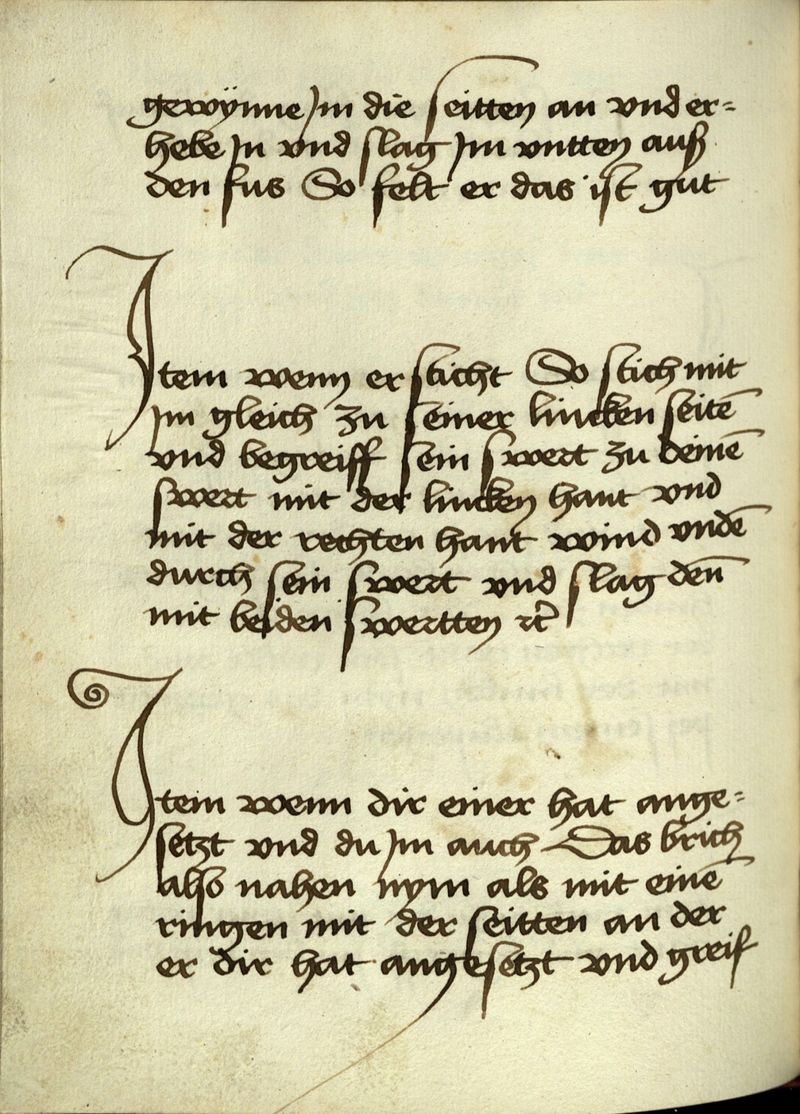 gewÿnne Jm die seitten an vnd er=
hebe Jn vnd slag Jm vntten auß
den fus So felt er das ist gut
Jtem wenn er sticht So stich mit
Jm gleich zu seiner lincken seitē
vnd begreiff sein swert zu deinē
swert mit der lincken hant vnd
mit der rechten hant wind vndē
durch sein swert vnd slag den̄
mit beiden swertten rc̄
Jtem wenn dir einer hat ange=
setzt vnd du Jm auch Das brich
also nahen nym als mit einē
ringen mit der seitten an der
er dir hat angesetzt vnd greif